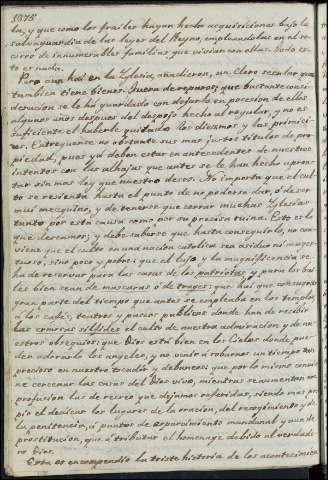 1078
la, y que como los frailes hayan hecho adquisiciones bajo la
salvaguardia de las leyes del Reyno, empleandolas en el so-
corro de innumerables familias que vivian con ellas. Todo es-
to es nada.
Pero aun hai en la Iglesia, añadieron, un Clero secular que
tambien tiene bienes. Fuera de reparos; que bastante consi-
deracion se le há guardado con dejarlo en posecion de ellos
algunos años despues del despojo hecho al regular, y no es
suficiente el haberle quitado los diezmos y las primici-
as. Entreguense no obstante sus mas justos titulos de pro-
piedad, pues ya deben estar en antecedentes de nuestros
intentos con las alhajas que antes se le han hecho apron-
tar sin mas ley que nuestro deseo. No importa que el cul-
to se resienta hasta el punto de no poderse dar, ó de ser
mui mezquino, y de tenerse que cerrar muchas Iglesias
tanto por esta causa como por su precisa ruina. Esto es lo
que deseamos; y debe saberse que hasta conseguirlo, no con-
viene que el culto en una nacion catolica sea asiduo ni mages-
tuoso, sino poco y pobre: que el lujo y la magnificencia se
ha de reservar para las casas de los patriotas; y para los bai-
les bien sean de mascaras ó de trages: que hai que consagrar
gran parte del tiempo que antes se empleaba en los templos,
á los cafés, teatros y paseos publicos donde han de recibir
las ermosas silfides el culto de nuestra admiracion y de nu-
estros obsequios: que Dios está bien en los Cielos donde pue-
den adorarlo los angeles, y no venir á robarnos un tiempo tan
precioso en nuestro tocador y deboneos: que por lo mismo convie-
ne cercenar las casas del Dios vivo, mientras se aumentan con
profusion las de recreo que dejamos referidas, siendo mas pro-
pio el dedicar los lugares de la oracion, del recogimiento y de
la penitencia, á puntos de esparcimiento mundanal y aun de
prostitucion, que á tributar el homenage debido al verdade-
ro Dios.
Esta es en compendio la triste historia de los acontecimien-